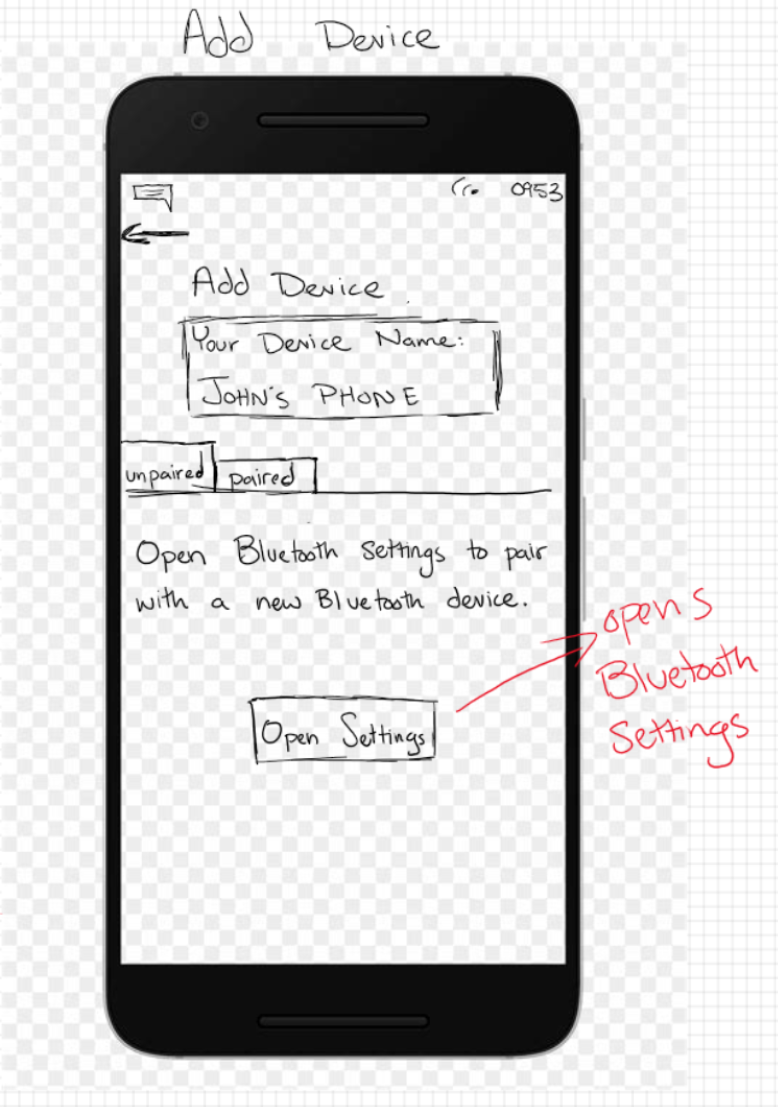 Add Device
0953
Add Device
Your Device Name:
JOHN'S PHONE
unpaired
paired
Open Bluetooth Settings to pair
with a new Bluetooth device.
Open Settings
opens
Bluetooth
Settings